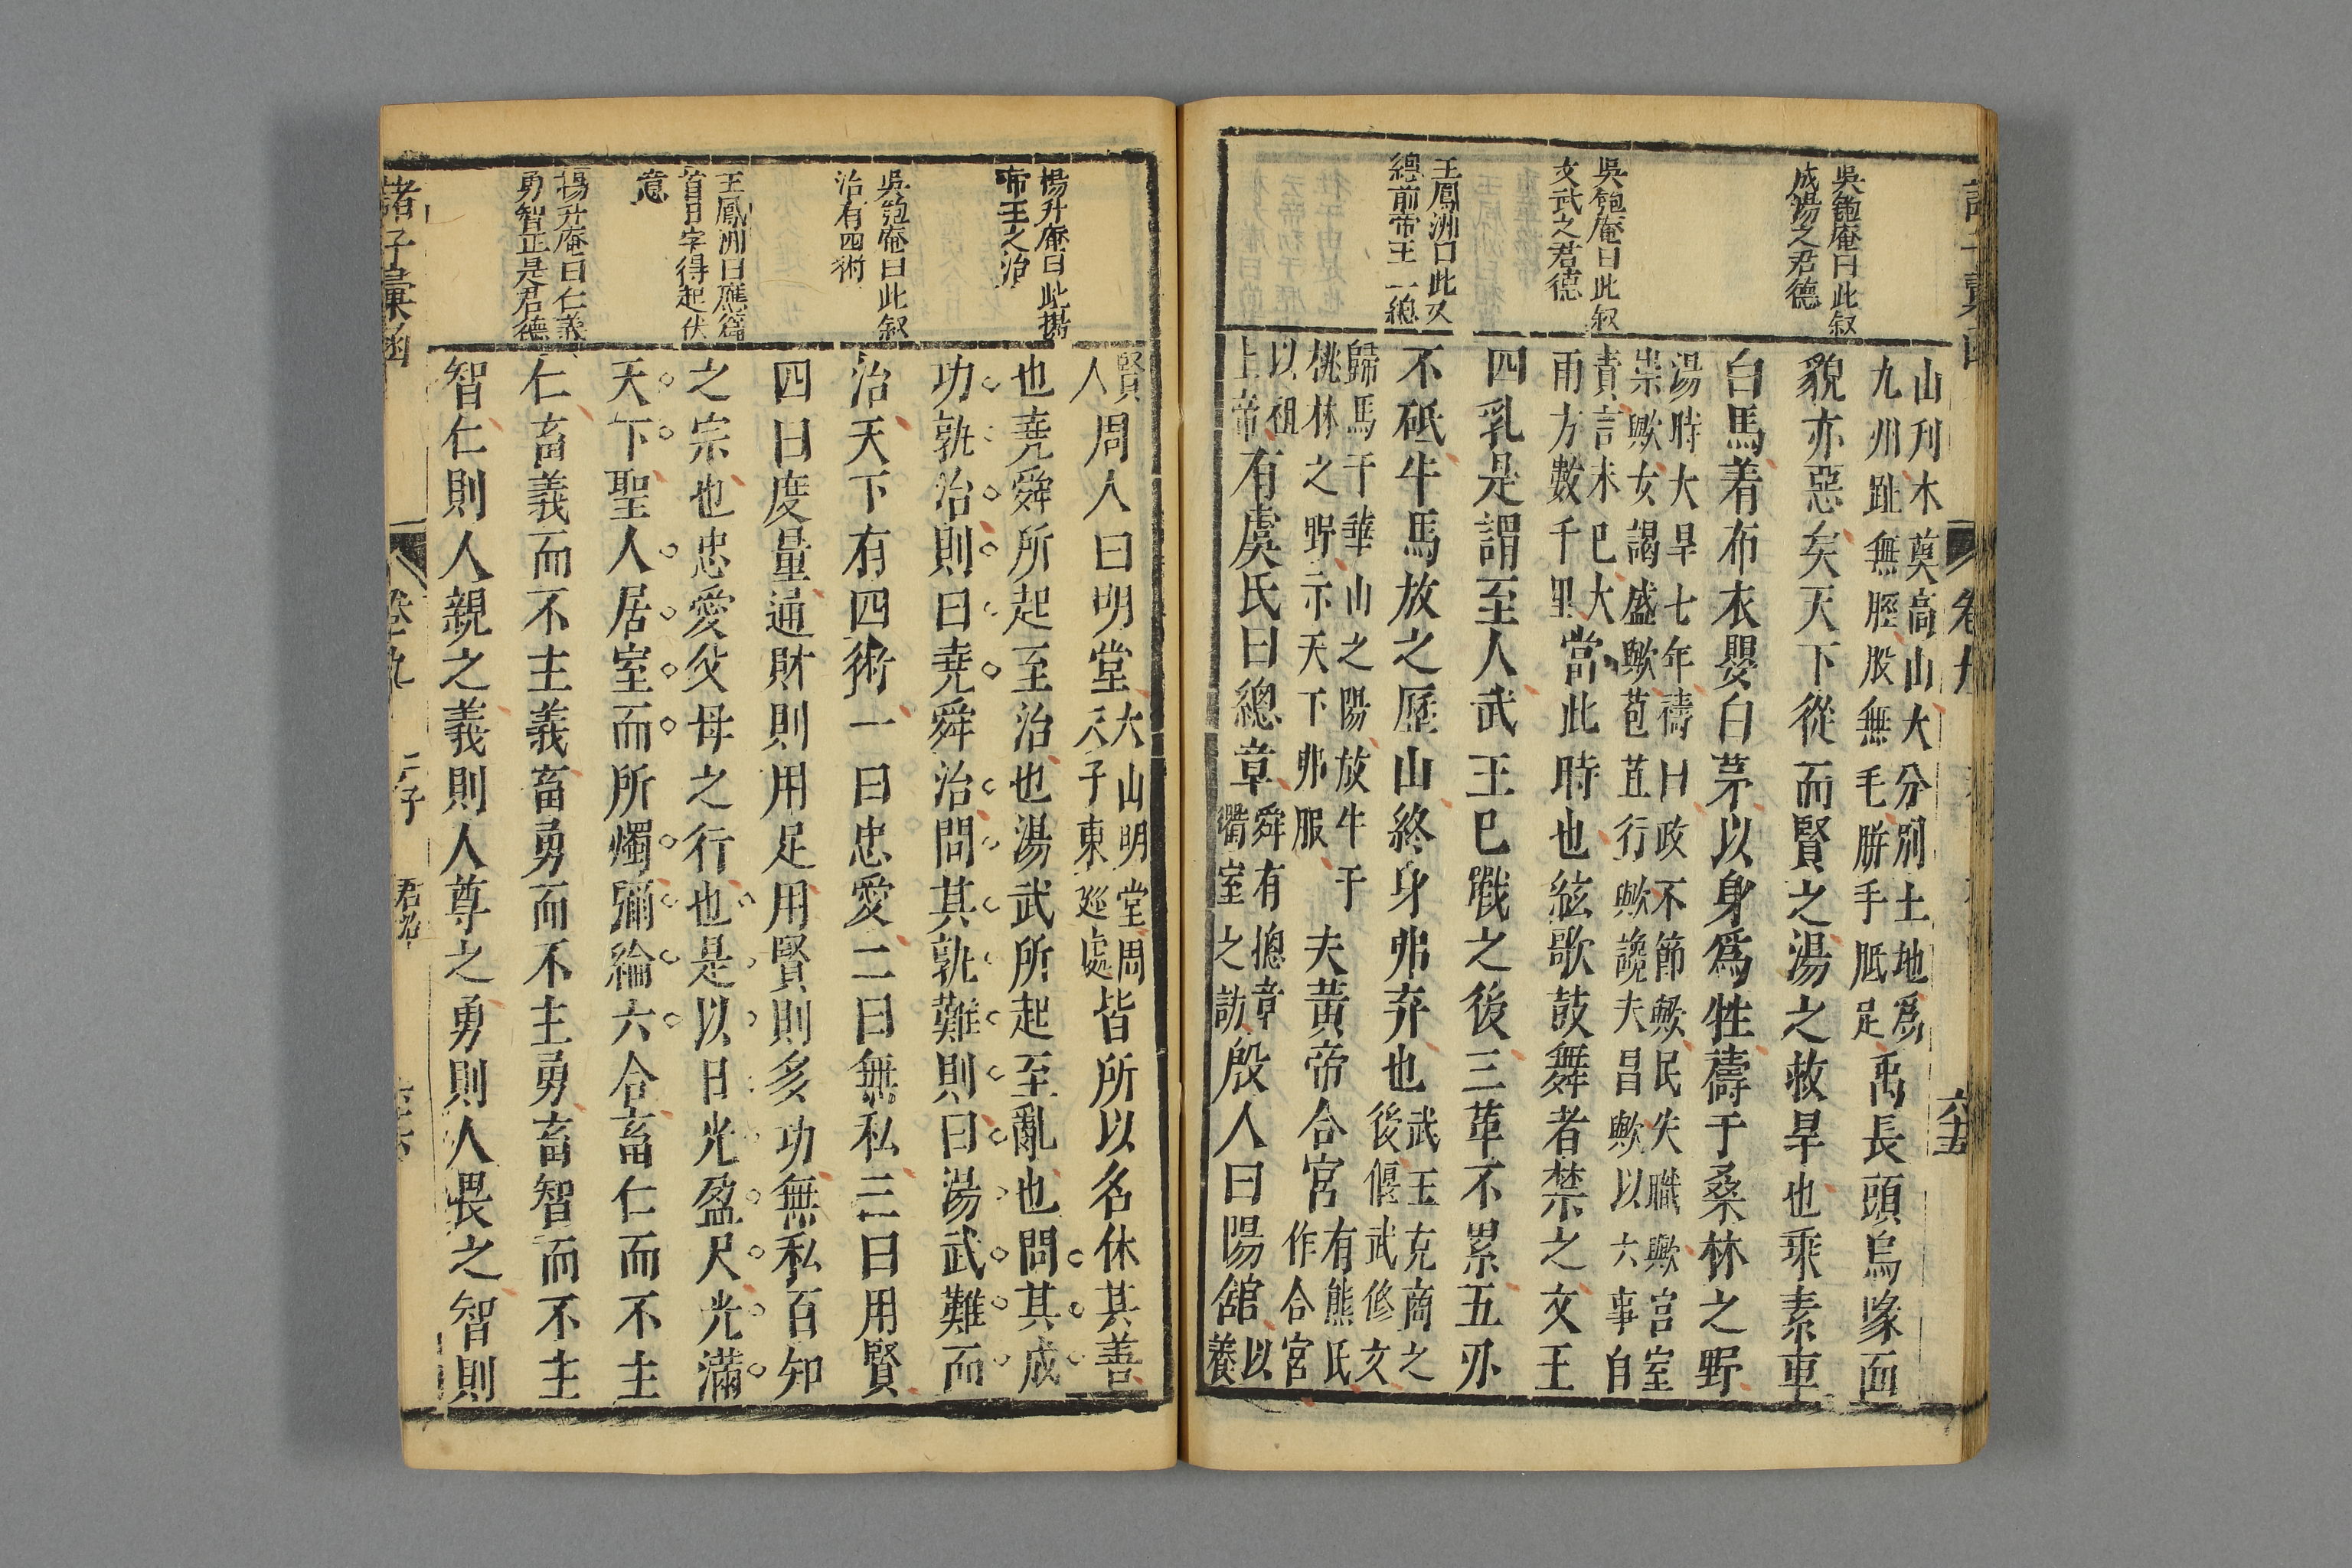 吳匏庵曰此叙
成湯之君德
吳匏庵曰此叙
文武之君德
王鳳洲曰此又
總前帝王一總
山刋木奠高山大分別土地爲
九州趾無脛股無毛胼手胝足禹長頭鳥喙面
貌亦惡矣天下從而賢之湯之救旱也乘素車
白馬着布衣嬰白茅以身爲牲禱于桑林之野
湯時大旱七年禱曰政不節歟民失職歟宫室
崇歟女謁盛歟苞苴行歟讒夫昌歟以六事自
責言未已大
雨方數千里當此時也絃歌鼓舞者禁之文王
四乳是謂至人武王已戰之後三革不累五刃
不砥牛馬放之歷山終身弗弃也武王克商之
後偃武修文
歸馬于華山之陽放牛于
桃林之野示天下弗服夫黃帝合宮有熊氏
作合宮
以祖
上帝有虞氏曰總章舜有總章
衢室之訪殷人曰陽舘以
養
楊升庵曰此揭
帝王之治
吳匏庵曰此叙
治有四術
王鳳洲曰應篇
首日字得起伏
意
楊升庵曰仁義
勇智正是君德
賢
人周人曰明堂太山明堂周
天子東巡處皆所以名休其善
也堯舜所起至治也湯武所起至亂也問其成
功孰治則曰堯舜治問其孰難則曰湯武難而
治天下有四術一曰忠愛二曰無私三曰用賢
四曰度量通財則用足用賢則多功無私百知
之宗也忠愛父母之行也是以日光盈尺光滿
天下聖人居室而所燭彌綸六合畜仁而不主
仁畜義而不主義畜勇而不主勇畜智而不主
智仁則人親之義則人尊之勇則人畏之智則
諸子彙函
卷九
君治